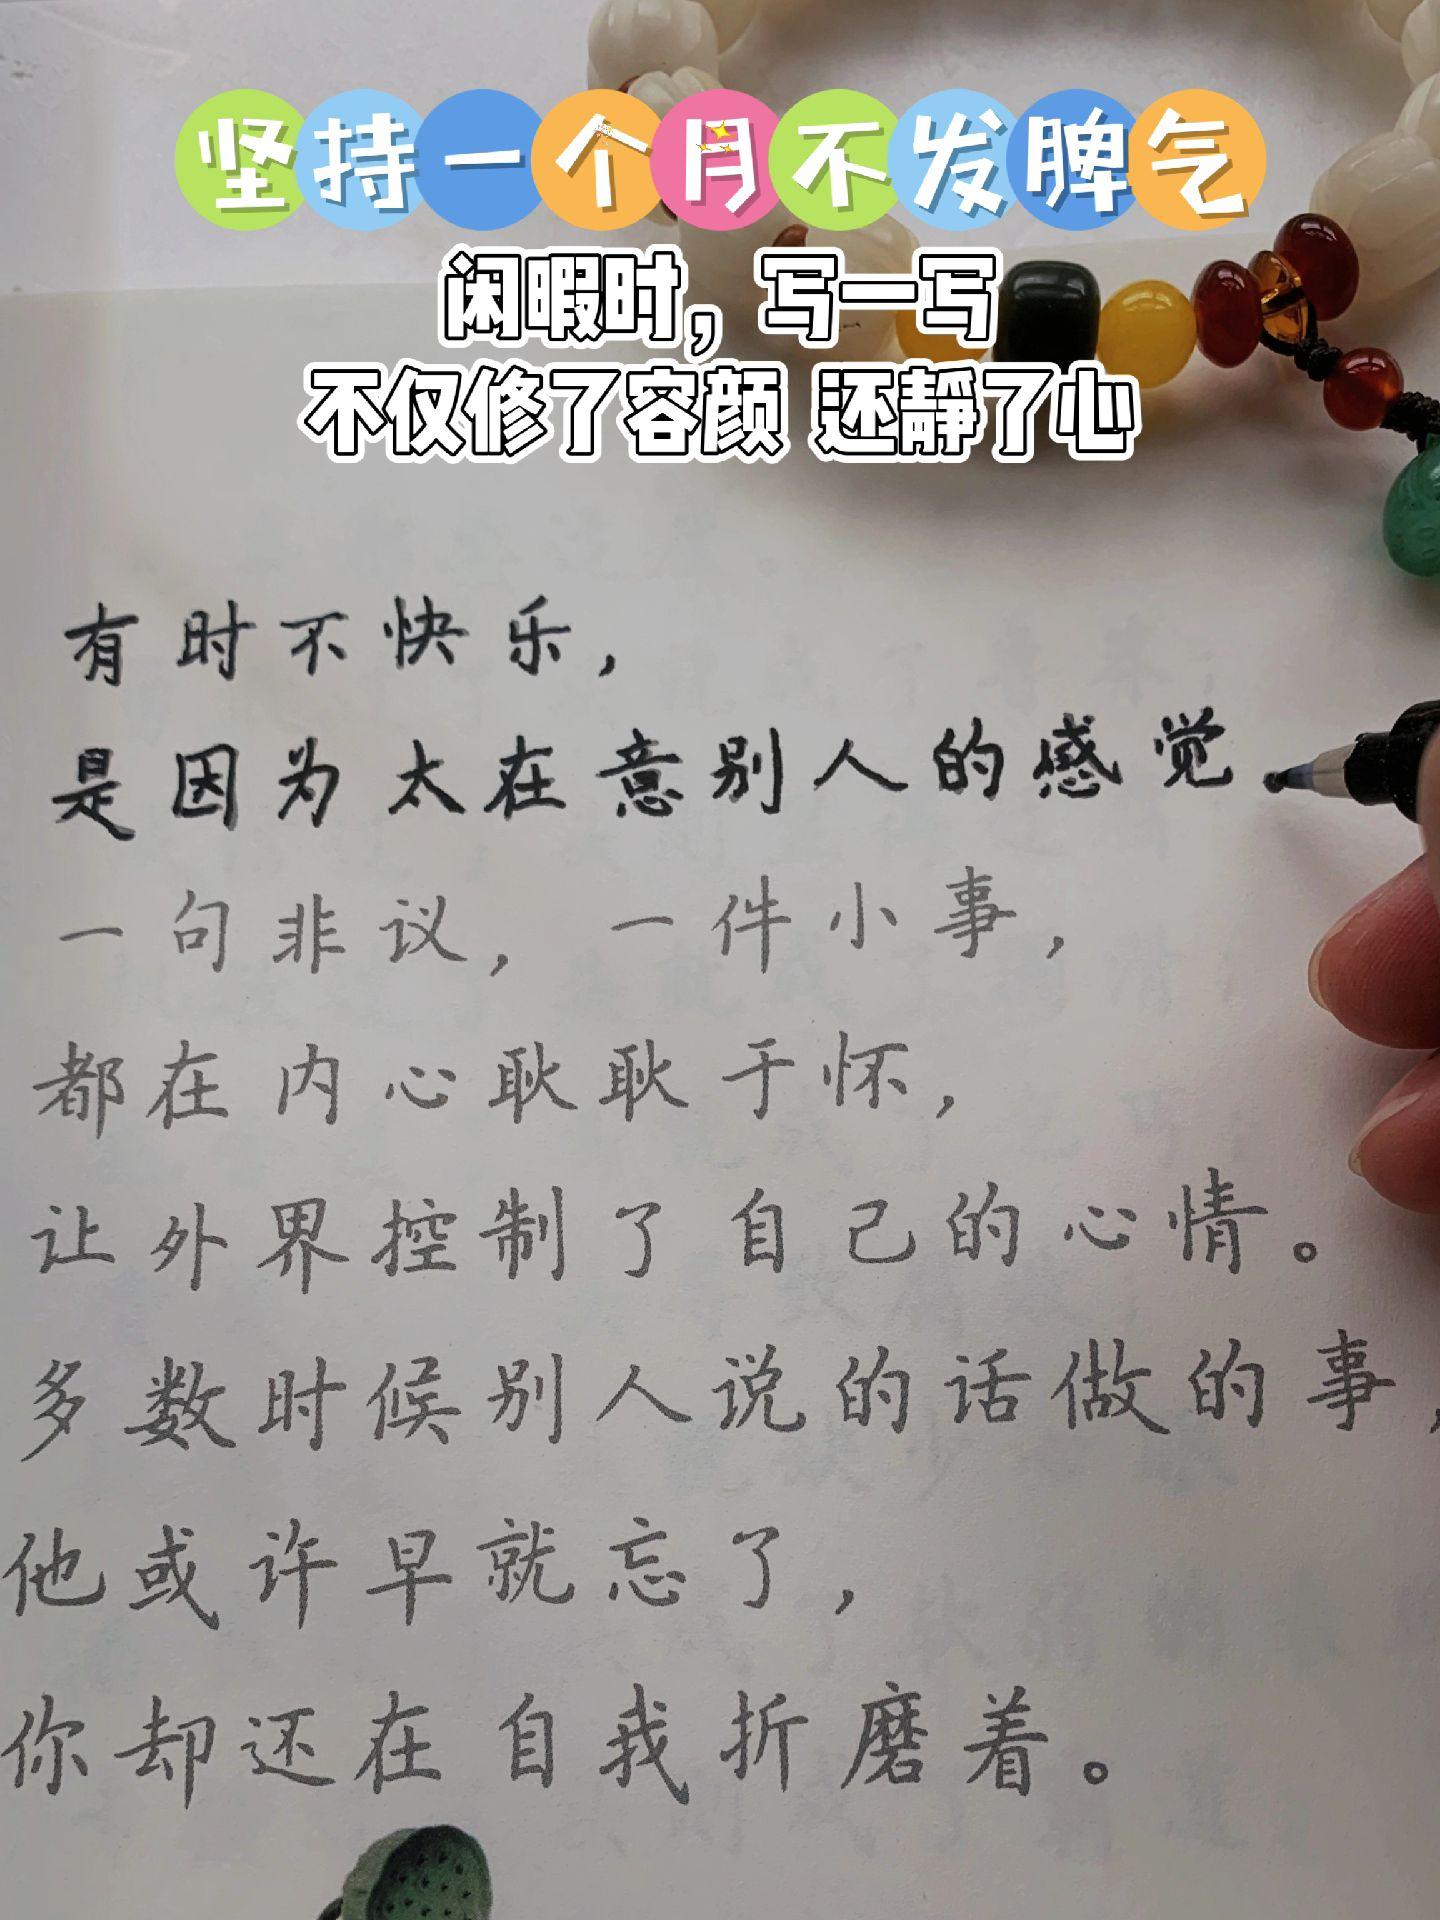 坚持一个月不发脾气
闲暇时，写一写
不仅修了容颜 还静了心
有时不快乐，
是因为太在意别人的感觉
一句非议，一件小事，
都在内心耿耿于怀，
让外界控制了自己的心情。
多数时候别人说的话做的事，
他或许早就忘了，
你却还在自我折磨着。